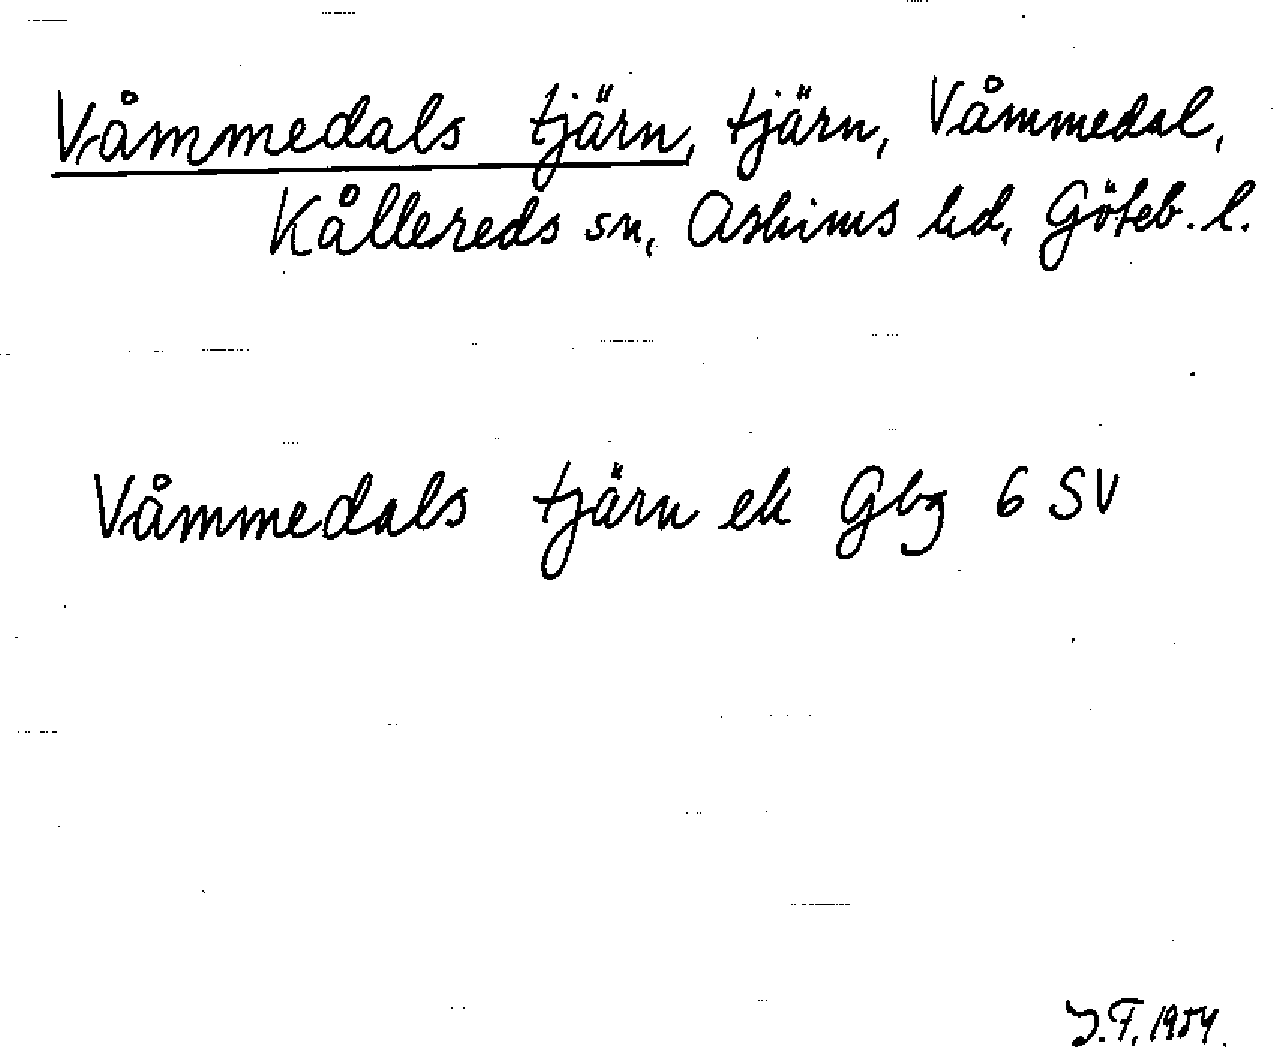 Våmmedals tjärn, tjärn, Våmmedal,
Kållereds sn, Askims hd, Göteb. l.
Våmmedals tjärn ek Gbg 6 SV
J.F. 1954.